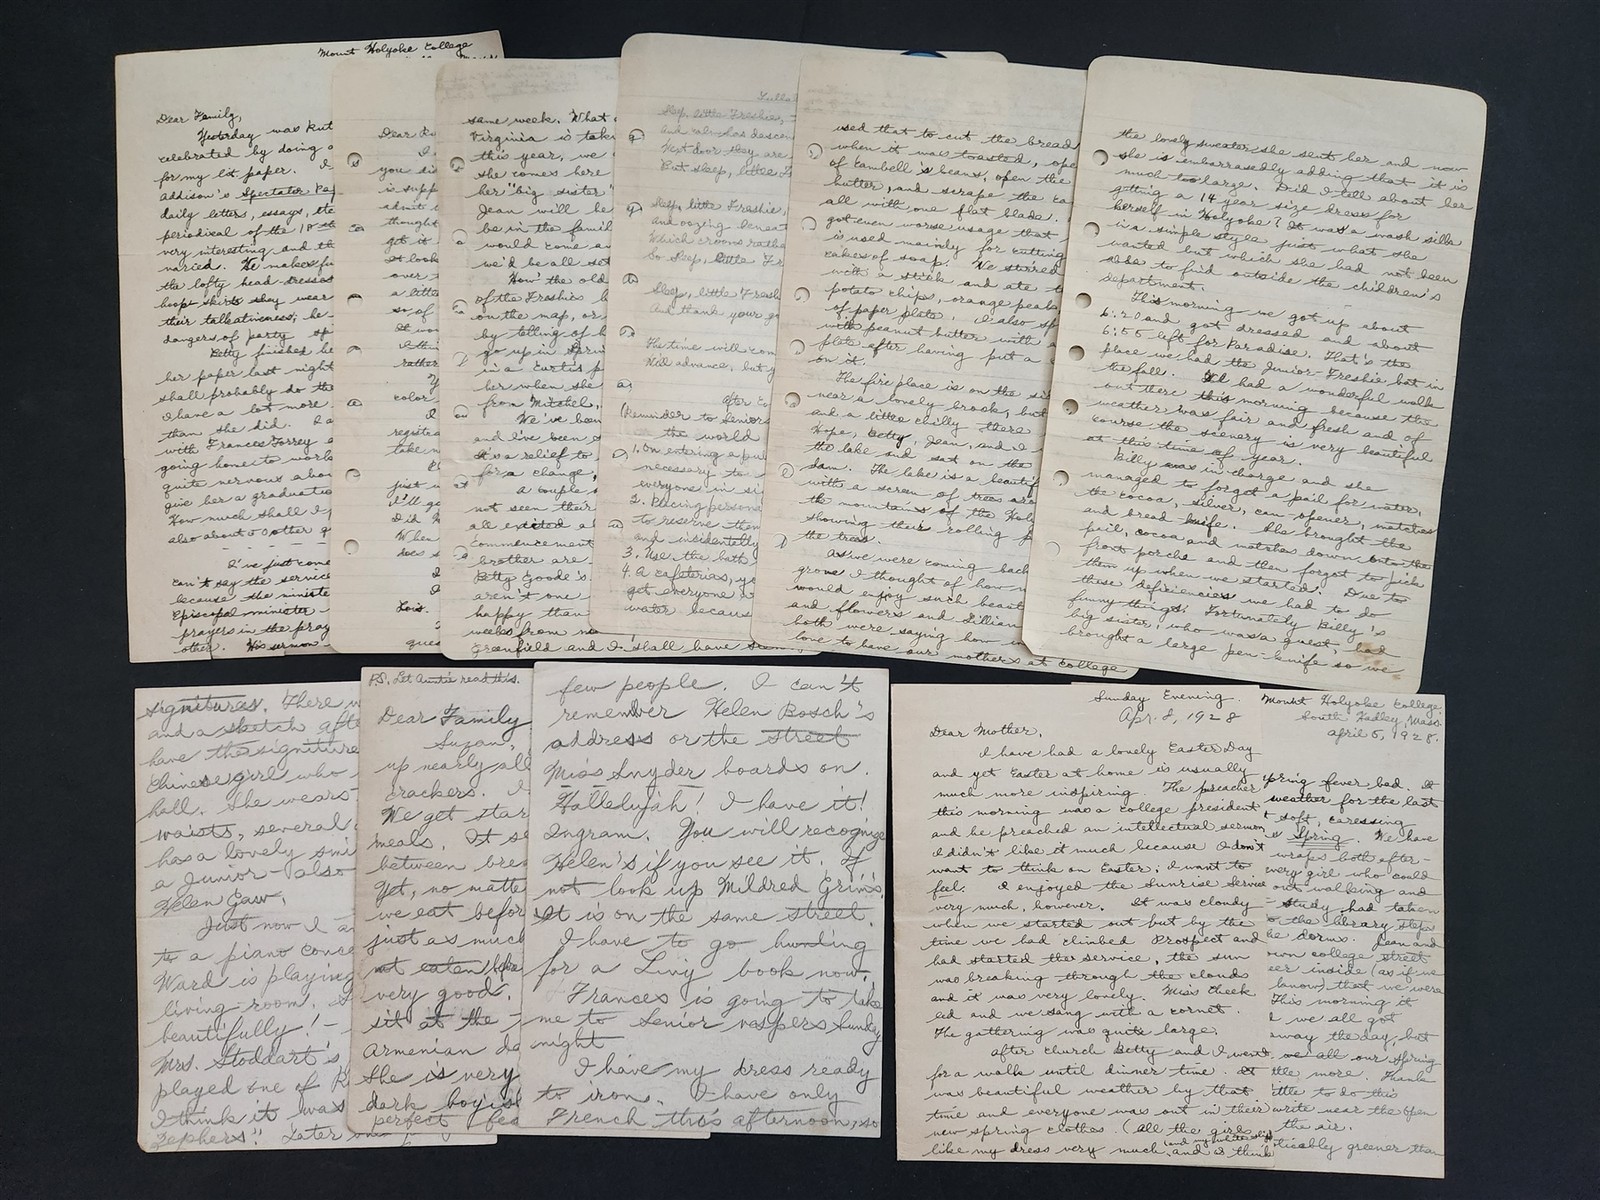 Mount Holyoke College
Dear Family,
Yesterday was
celebrated by doing
for my lit paper. I
Addison's Spectator
daily letters, essays,
periodical of the 18
very interesting and
varied. He makes
the lofty head dresses
hoop skirts they wear
their talkativeness, he
dangers of party
Betty finished
her paper last night
shall probably do the
I have a lot more
than she did.
with Frances Torrey
going home to work
quite nervous about
give her a graduation
How much shall I
also about
I've just come
can't say the service
because the minister
Episcopal minister
prayers in the pray
other. His sermon
Dear
I
you
is supp
admit
thought
get it
It looks
over
a little
so of
It
I thin
rather
color
I
registra
take
just
I'll ge
Did
When
does
Lois.
ques
same week. What
Virginia is take
this year, we
she comes here
her "big sister"
Jean will be
be in the famil
would come an
we'd be all set
How the old
of the Freshies
on the map, or
by telling of
go up in Spri
in a Curtis
her when she
from Mitchel,
We've been
and I've been
It's a relief to
for a change,
A couple
not seen their
all excited a
Commencement
brother are
Betty Goode's
aren't one
happy than
weeks from no
Greenfield and I shall have
Sleep, little Freshies,
and calm has descen
Next door they are
But sleep, little
Sleep, little Freshie,
and oozing beneat
Which croons
So sleep, little
Sleep, little Fresh
and thank your
The time will com
Nid advance, but
after
(Reminder to Seniors
the world
1. On entering a pu
necessary to
everyone in si
2. Placing persona
to reserve them
and incidentally
3. Use the bath
4. A cafeterias,
get everyone
water because
used that to cut the bread
when it was toasted, ope
of Cambell's beans, open the
butter, and scrape the
all with one flat blade.
got even worse usage that
is used mainly for cutting
cakes of soap. We stirred
with a stick and ate
potato chips, orange peals
of paper plate. I also
with peanut butter with
plate after having put a
on it.
The fire place is on the si
near a lovely brook, but
and a little chilly there
Hope, Betty, Jean, and I
the lake and sat on the
dam. The lake is a beautif
with a screen of trees aro
the mountains of the Holy
showing their rolling
the trees.
As we were coming back
grove I thought of how
would enjoy such beaut
and flowers and Lillian
both were saying how
love to have our mothers at college
the lovely sweater she sent her and now
she is embarrasedly adding that it is
much too large. Did I tell about her
getting a 14 year size dress for
herself in Holyoke? It was a wash silk
in a simple style just what she
wanted but which she had not been
able to find outside the children's
department.
This morning we got up about
6:20 and got dressed and about
6:55 left for Paradise. That's the
place we had the Junior-Freshie bat in
the fall. We had a wonderful walk
out there this morning because the
weather was fair and fresh and of
course the scenery is very beautiful
at this time of year.
Billy was in charge and she
managed to forget a pail for water,
the cocoa, silver, can-opener, matches
and bread knife. She brought the
pail, cocoa and matches down onto the
front porche and then forgot to pick
them up when we started. Due to
these deficiencies we had to do
funny things. Fortunately Billy's
big sister, who was a guest, had
brought a large pen-knife so we
signitures. There
and a sketch afte
have the signiture
Chinese girl who
hall. She wears
waists, several
has a lovely smi
a Junior - also
Helen Gaw.
Just now I
to a piano conce
Ward is playing
living-room.
beautifully! -
Mrs. Stoddart's
played one of
I think it was
Zephers"! Later
P.S. Let Auntie read this.
Dear Family
Suzan,
up nearly all
crackers. I
We get star
meals. It se
between bre
Yet, no matte
we eat befor
just as much
not eaten
very good.
sit at the
Armenian
She is very
dark boyish
perfect
few people. I can't
remember Helen Bosch's
address or the street
Miss Snyder boards on.
Hallelujah! I have it!
Ingram. You will recognize
Helen's if you see it. If
not look up Mildred Grim's.
It is on the same street.
I have to go hunting
for a Livy book now.
Frances is going to take
me to Senior vespers Sunday
night
I have my dress ready
to iron. I have only
French this afternoon, so
Sunday Evening.
Apr. 8, 1928
Dear Mother,
I have had a lovely Easter Day
and yet Easter at home is usually
much more inspiring. The preacher
this morning was a college president
and he preached an intellectual sermon
I didn't like it much because I don't
want to think on Easter; I want to
feel. I enjoyed the Sunrise Service
very much, however. It was cloudy
when we started out but by the
time we had climbed Prospect and
had started the service, the sun
was breaking through the clouds
and it was very lovely. Miss Cheek
led and we sang with a cornet.
The gathering was quite large.
After church Betty and I went
for a walk until dinner time. It
was beautiful weather by that
time and everyone was out in their
new spring clothes. (All the girls
like my dress very much and I think
Mount Holyoke College
South Hadley, Mass.
April 5, 1928.
pring fever bad. It
weather for the last
t soft, caressing
is Spring. We have
wraps both after-
very girl who could
out walking and
study had taken
the library steps
the dorm. Jean and
own college street
eer inside (as if we
know) that we were
This morning it
d we all got
away the day, but
we all our spring
ttle more. Thank
ttle to do this
write near the open
the air.
ticably greener than